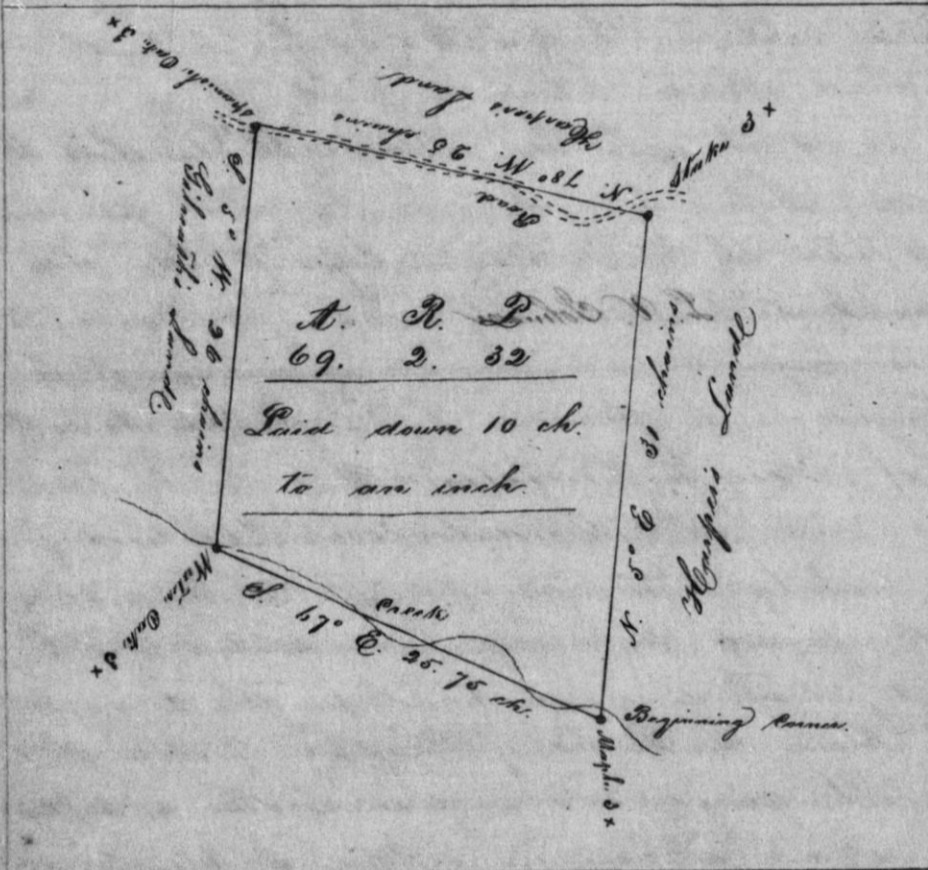 Spanish Oak 3 x
Harpers Land
N. 78° W. 25 chains
Road
Stake 3 x
S 5° W. 26 chains
Lands
A. R. P
69. 2. 32
Laid down 10 ch.
to an inch.
N. 5° E 31 chains
Harper's Lands
Creek
S. 67° E 25.75 ch.
Water Oak 3 x
Beginning Corner.
Maple 3 x